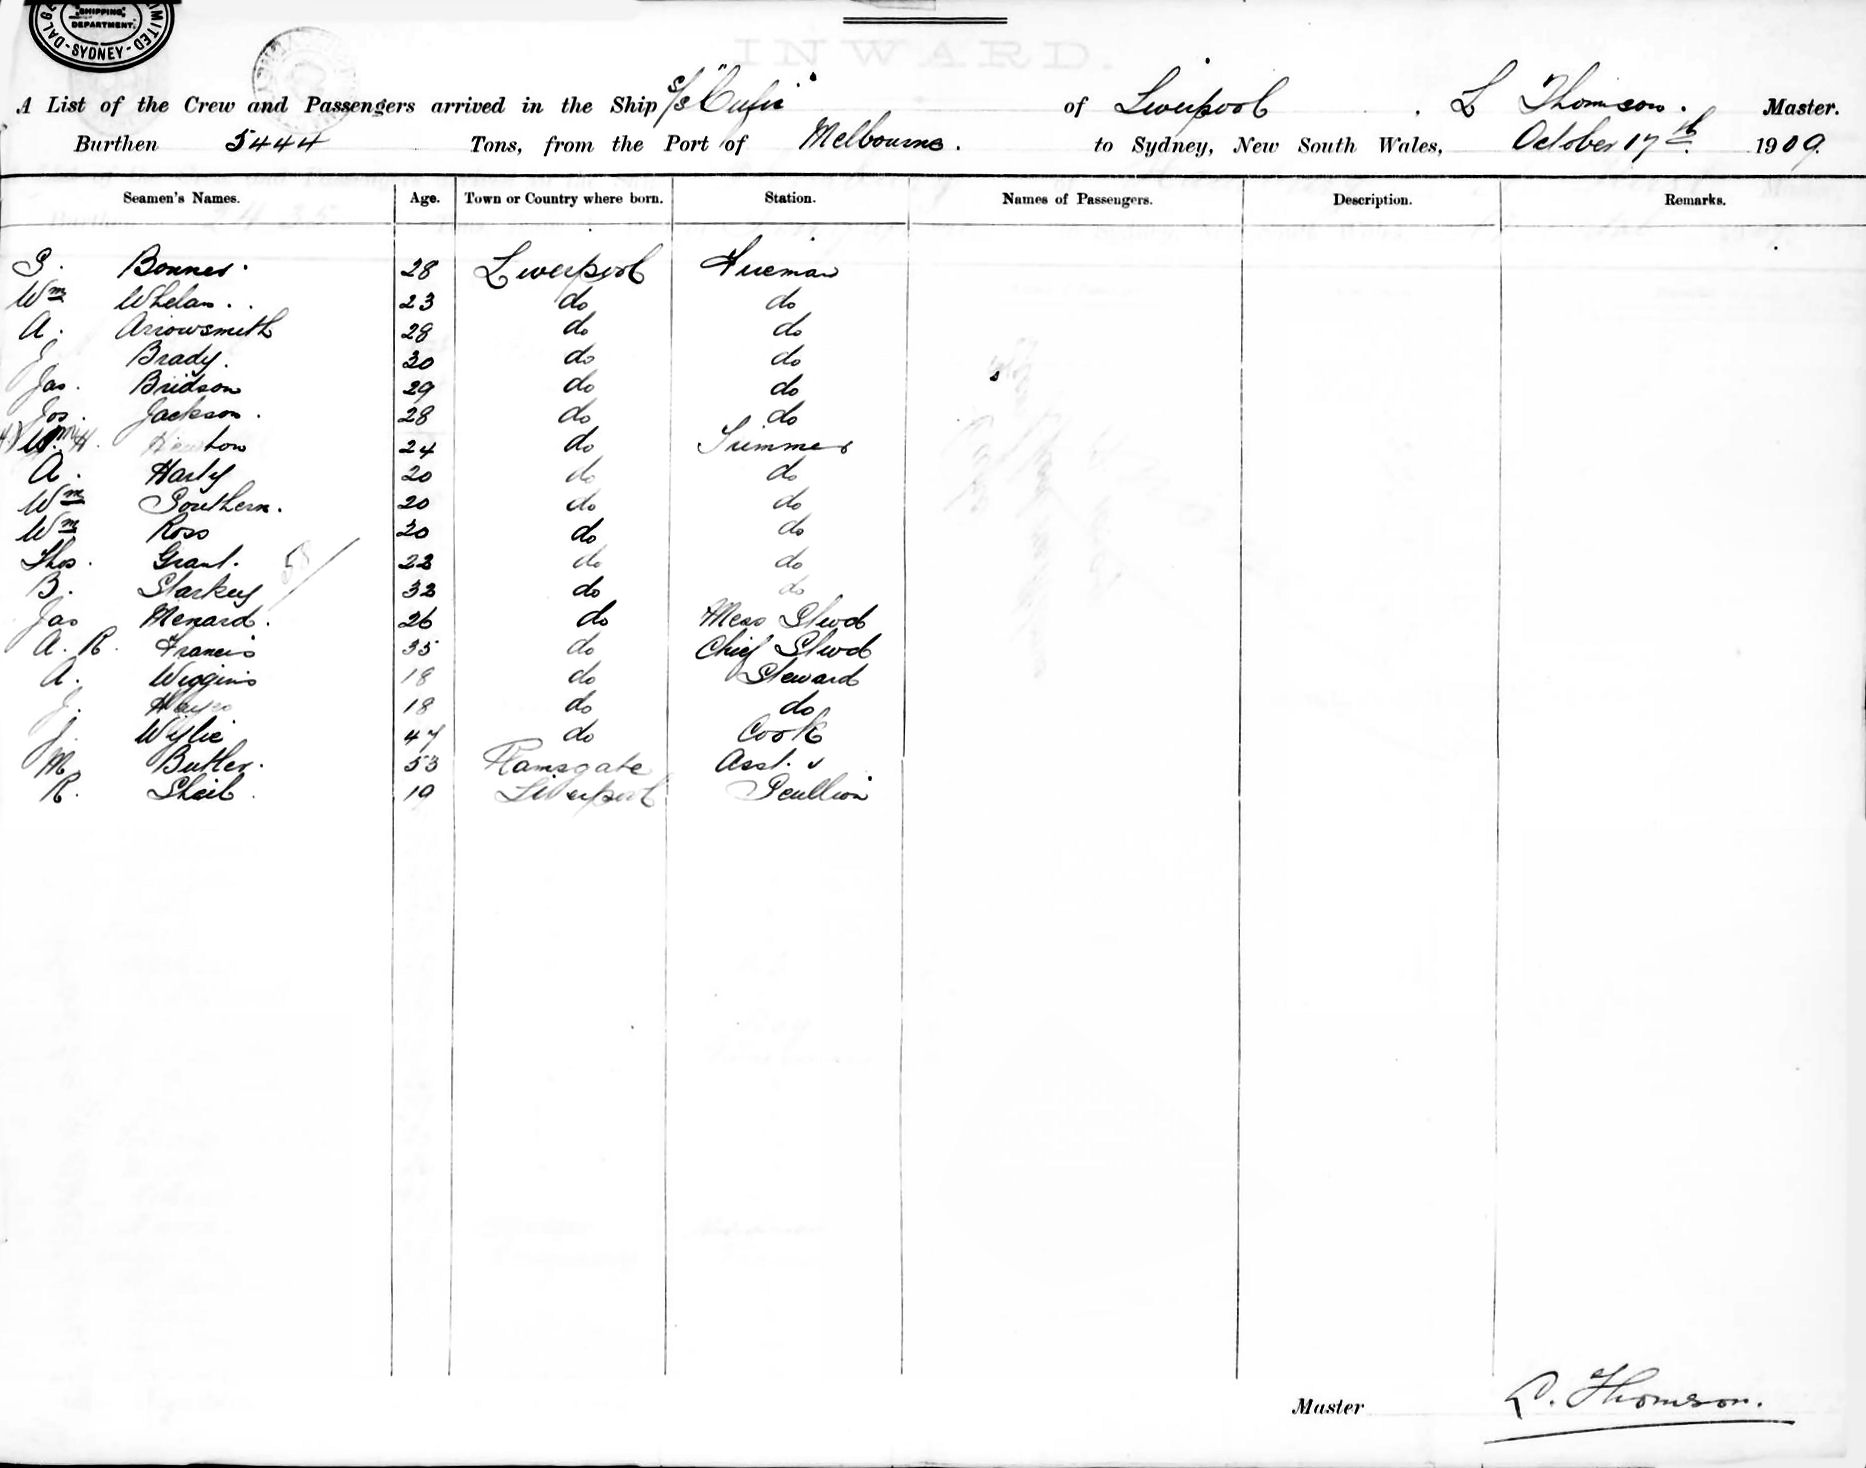 SHIPPING
DEPARTMENT.
SYDNEY
INWARD.
A List of the Crew and Passengers arrived in the Ship S/S "Cufic" of Liverpool, L Thomson. Master.
Burthen 5444 Tons, from the Port of Melbourne. to Sydney, New South Wales, October 17th 1909.
Seamen's Names. Age. Town or Country where born. Station. Names of Passengers. Description. Remarks.
S. Bonner. 28 Liverpool Fireman
Wm Whelan. 23 do do
A. Arrowsmith 28 do do
J Brady. 30 do do
Jas. Bridson 29 do do
Jos. Jackson. 28 do do
24 do Trimmer
A. Harly 20 do do
Wm Southern. 20 do do
Wm Ross 20 do do
Thos. Grant. 22 do do
B. Starkey 32 do do
Jas Menard. 26 do Mess Stwd
A. R. Francis 35 do Chief Stwd
A. Wiggins 18 do Steward
J. Hayes 18 do do
J. Wylie 47 do Cook
M. Butler. 53 Ramsgate Asst. "
R. Sheil. 19 Liverpool Scullion
Master L. Thomson.